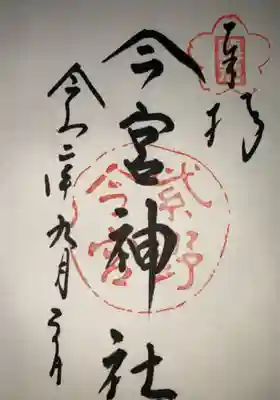 奉拝
今宮神社
紫野
今宮
令和二年九月二日